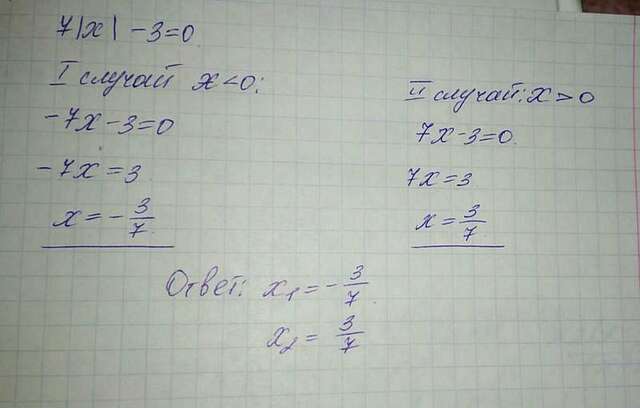 7|x| - 3 = 0
I случай x < 0:
-7x - 3 = 0
-7x = 3
x = - 3/7
II случай: x > 0
7x - 3 = 0
7x = 3
x = 3/7
Ответ: x₁ = - 3/7
x₂ = 3/7